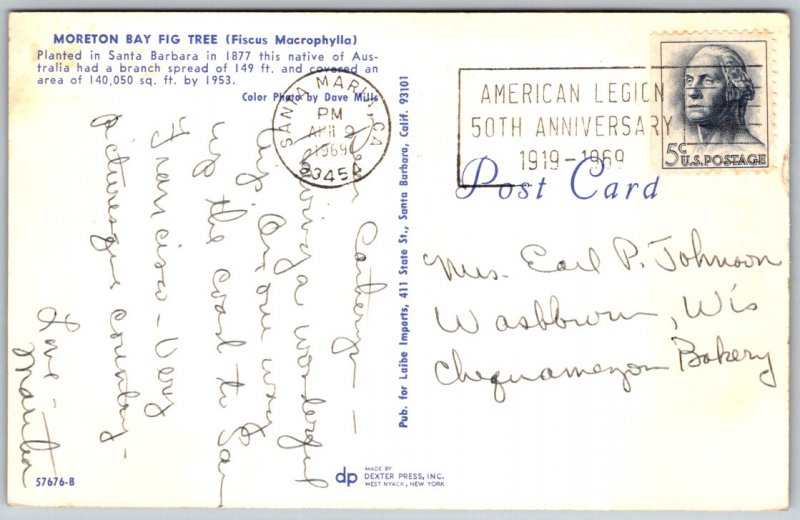 MORETON BAY FIG TREE (Fiscus Macrophylla)
Planted in Santa Barbara in 1877 this native of Aus-
tralia had a branch spread of 149 ft. and covered an
area of 140,050 sq. ft. by 1953.
Color Photo by Dave Mills
SANTA MARIA, CA
PM
APR 2
1969
93454
AMERICAN LEGION
50TH ANNIVERSARY
1919-1969
5c U.S. POSTAGE
Post Card
Dear
Having a wonderful
trip. On our way
up the coast to San
Francisco - Very
picturesque country -
Love -
Martha
Pub. for Laibe Imports, 411 State St., Santa Barbara, Calif. 93101
Mrs. Earl P. Johnson
Washburn, Wis
Chequamegon Bakery
57676-B
dp
MADE BY
DEXTER PRESS, INC.
WEST NYACK, NEW YORK